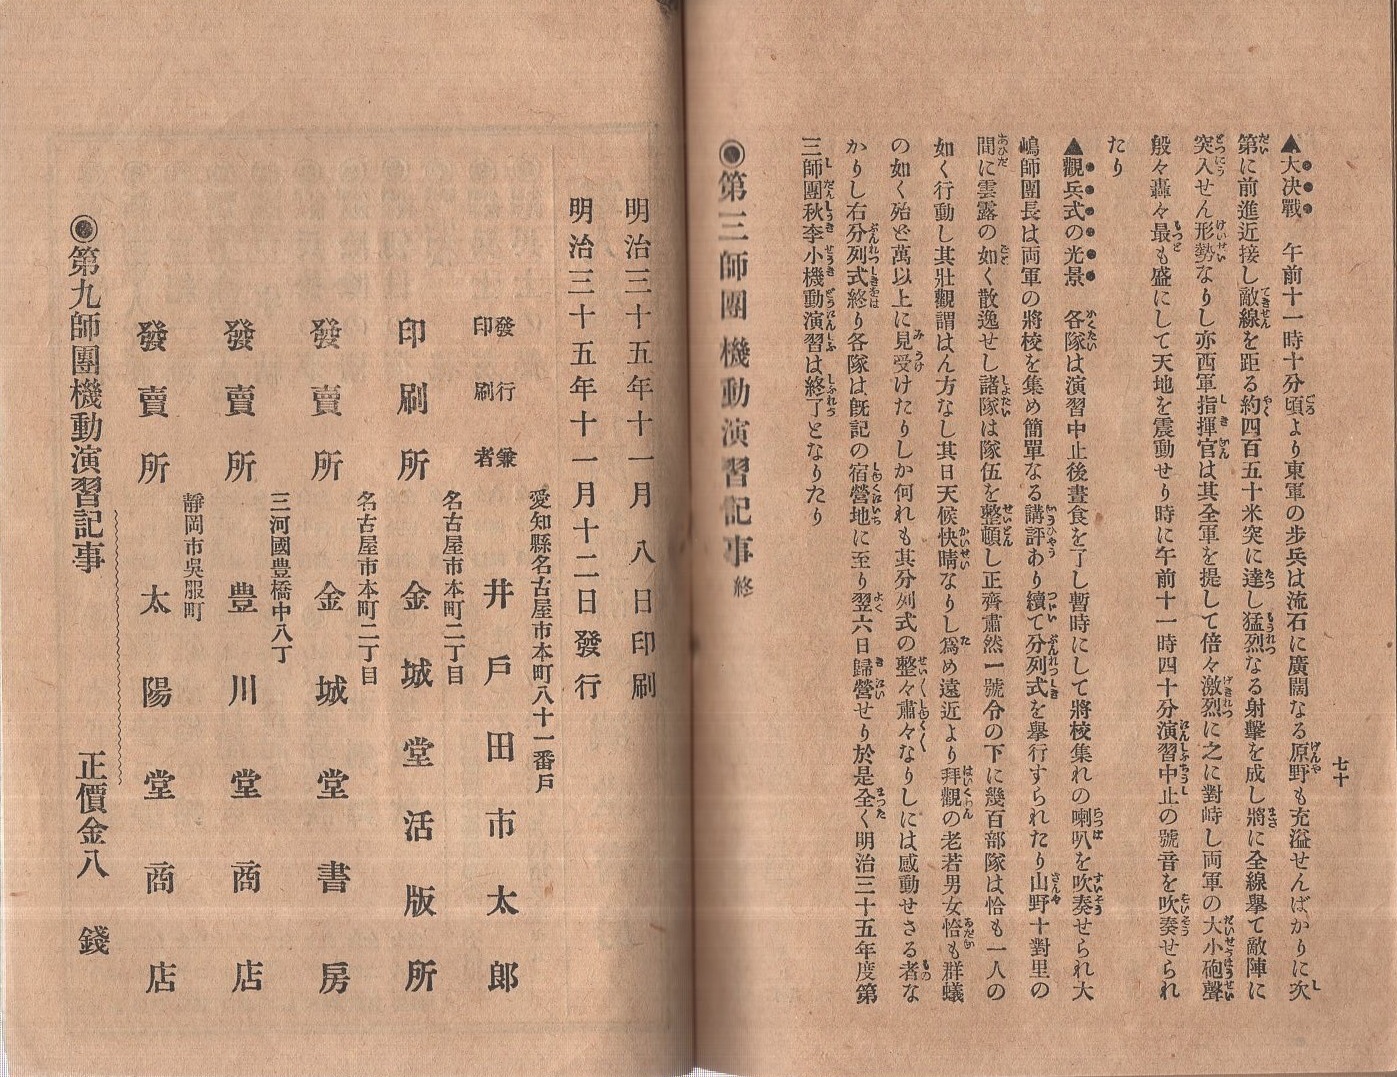 七十
▲大決戰　午前十一時十分頃より東軍の步兵は流石に廣闊なる原野も充溢せんばかりに次
第に前進近接し敵線を距る約四百五十米突に達し猛烈なる射擊を成し將に全線擧て敵陣に
突入せん形勢なりし亦西軍指揮官は其全軍を提して倍々激烈に之に對峙し両軍の大小砲聲
殷々轟々最も盛にして天地を震動せり時に午前十一時四十分演習中止の號音を吹奏せられ
たり
▲觀兵式の光景　各隊は演習中止後晝食を了し暫時にして將校集れの喇叭を吹奏せられ大
嶋師團長は両軍の將校を集め簡單なる講評あり續て分列式を擧行すられたり山野十對里の
間に雲露の如く散逸せし諸隊は隊伍を整頓し正齊肅然一號令の下に幾百部隊は恰も一人の
如く行動し其壯觀謂はん方なし其日天候快晴なりし爲め遠近より拜觀の老若男女恰も群蟻
の如く殆ど萬以上に見受けたりしか何れも其分列式の整々肅々なりしには感動せさる者な
かりし右分列式終り各隊は旣記の宿營地に至り翌六日歸營せり於是全く明治三十五年度第
三師團秋季小機動演習は終了となりたり
◉第三師團機動演習記事終
明治三十五年十一月八日印刷
明治三十五年十一月十二日發行
愛知縣名古屋市本町八十一番戶
發行兼印刷者　井戶田市太郎
名古屋市本町二丁目
印刷所　金城堂活版所
名古屋市本町二丁目
發賣所　金城堂書房
三河國豊橋中八丁
發賣所　豊川堂商店
靜岡市吳服町
發賣所　太陽堂商店
◉第九師團機動演習記事　正價金八錢